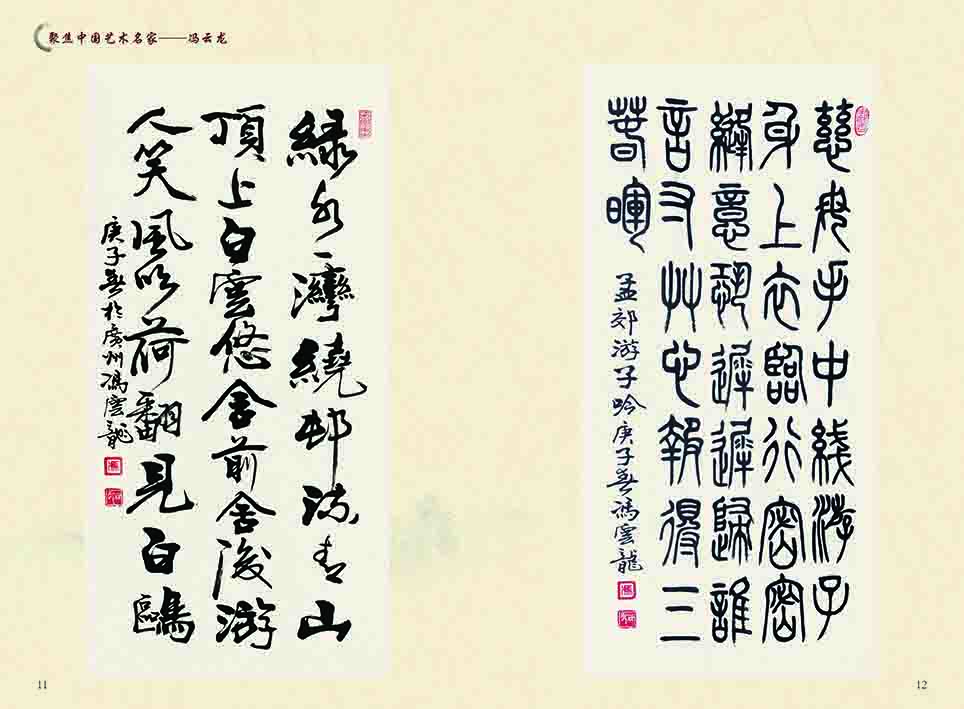 聚焦中国艺术名家——冯云龙
綠水一灣繞邨流青山
頂上白雲悠舍前舍後游
人笑風吹荷翻見白鷗
庚子春於廣州馮雲龍
11
慈母手中綫游子
身上衣臨行密密
縫意恐遲遲歸誰
言寸艸心報得三
春暉
孟郊游子吟庚子春馮雲龍
12